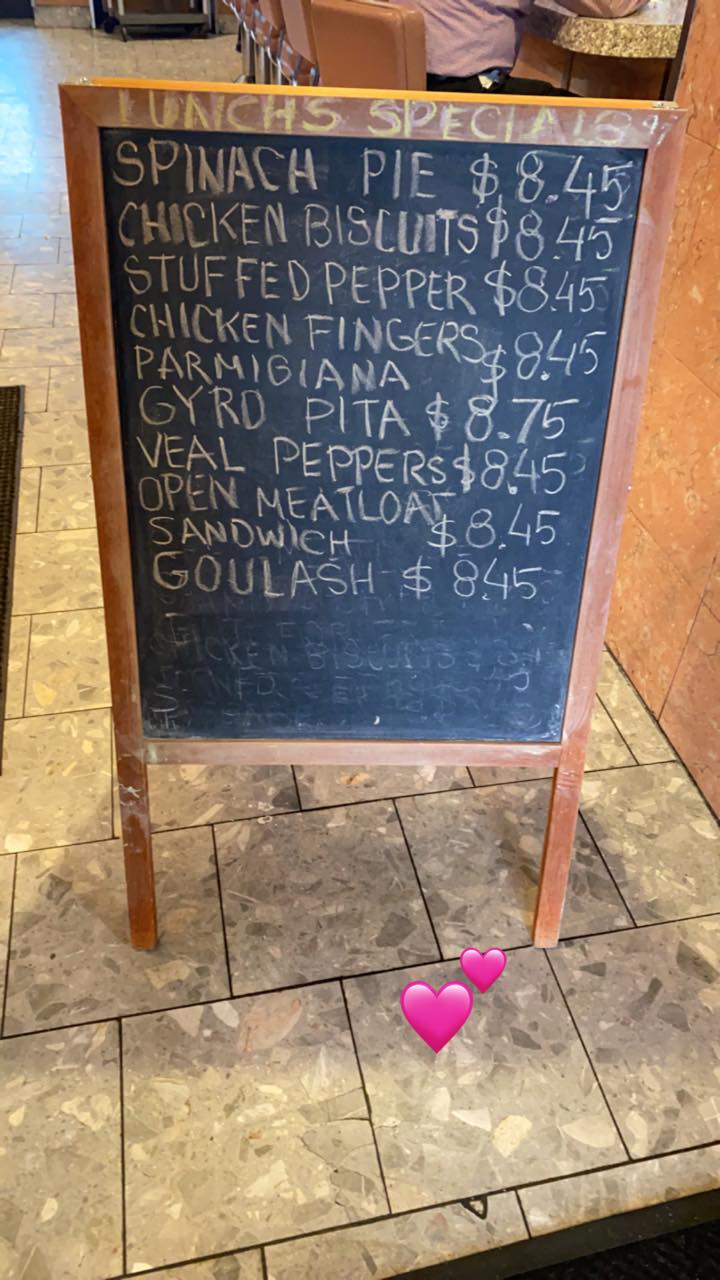 LUNCHS SPECIALS
SPINACH PIE $8.45
CHICKEN BISCUITS $8.45
STUFFED PEPPER $8.45
CHICKEN FINGERS
PARMIGIANA $8.45
GYRO PITA $8.75
VEAL PEPPERS $8.45
OPEN MEATLOAF
SANDWICH $8.45
GOULASH $845
CHICKEN BISCUITS